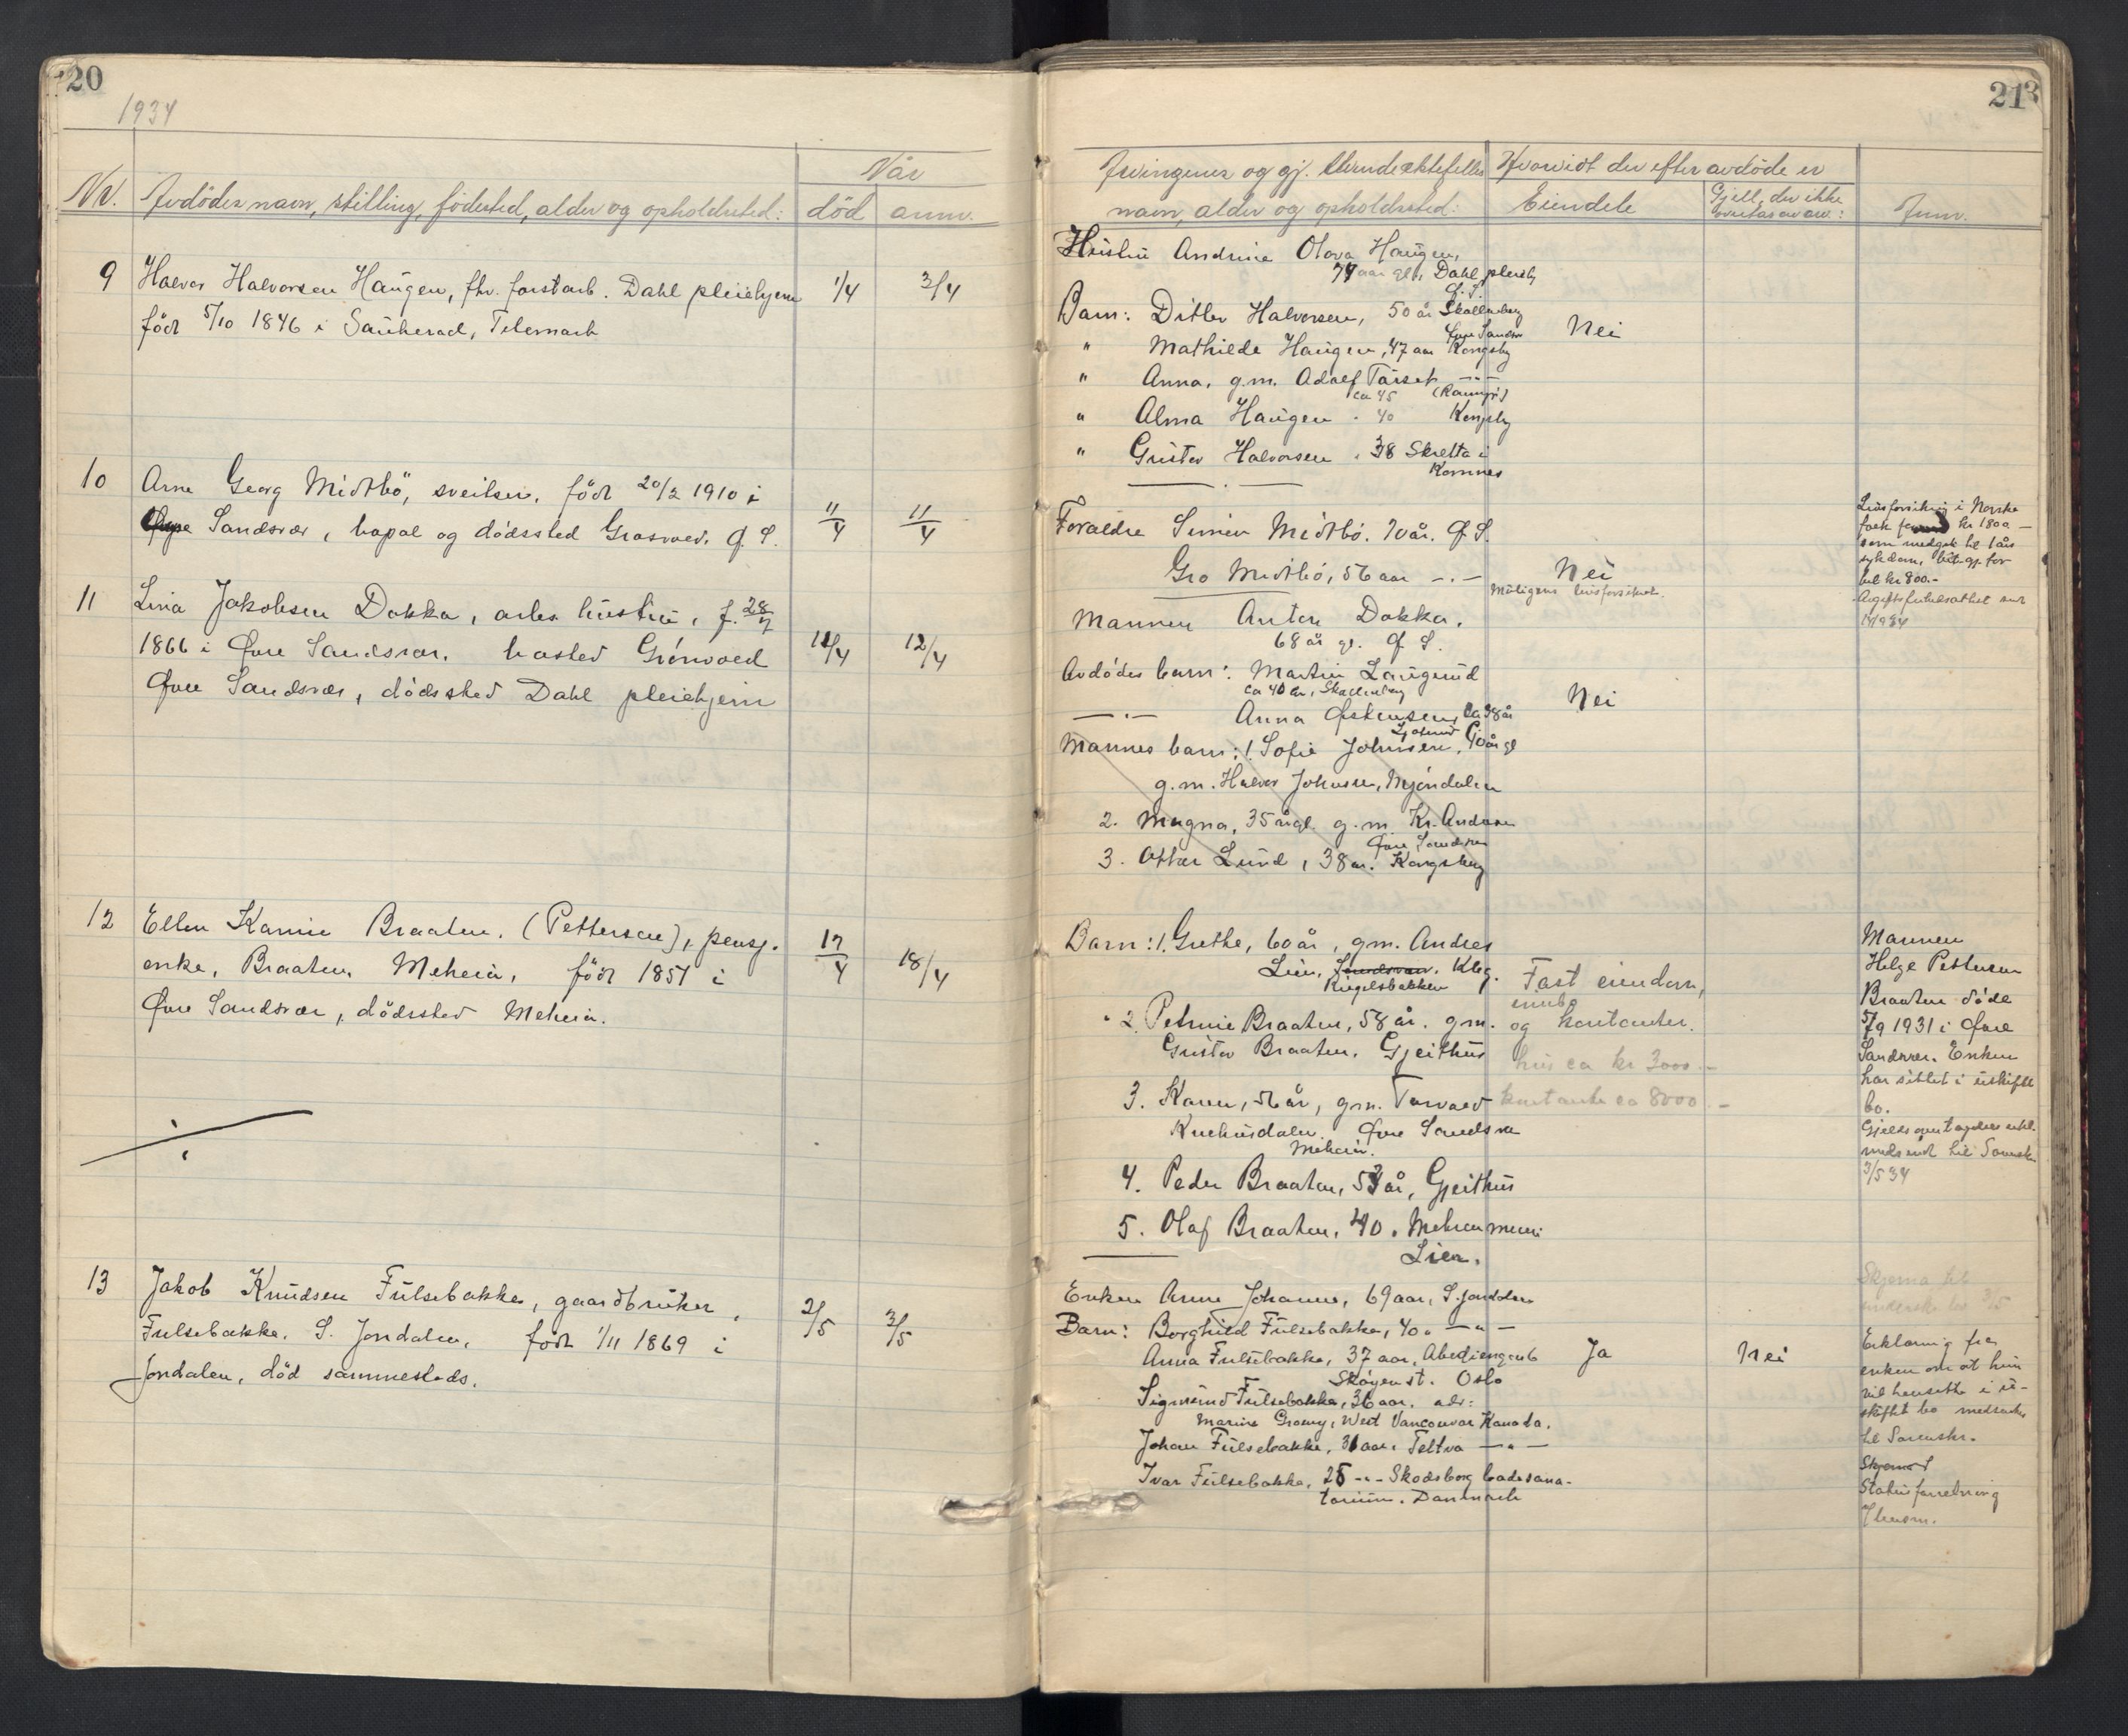 20
1934
Når
Nr. Avdödes navn, stilling, födested, alder og opholdssted: död anm.
9 Halvor Halvorsen Haugen, fhv. forstarb. Dahl pleiehjem 1/4 3/4
född 5/10 1846 i Sauherad, Telemark
10 Arne Georg Midtbö, sveitser, född 20/2 1910 i
Sandsvær, bopæl og dödssted Grosvoed. Ø. S. 11/4 11/4
11 Lina Jakobsen Dokka, arb. hustru, f. 28/7
1866 i Øvre Sandsvær. bosted Grönvoed 12/4 12/4
Øvre Sandsvær, dödssted Dahl pleiehjem
12 Ellen Karine Braaten. (Pettersen), pensj. 17/4 18/4
enke, Braaten, Meheia, född 1851 i
Øvre Sandsvær, dödssted Meheia.
13 Jakob Knudsen Fulsebakke, gaardbruker, 2/5 3/5
Fulsebakke. S. Jondalen, född 1/11 1869 i
Jondalen, död sammesteds.
213
Arvingenes og gj. levende ektefelles Hvorvidt der efter avdöde er
navn, alder og opholdssted: Eiendele Gjeld, der ikke overtas av arv.: Anm.
Hustru Andrine Olava Haugen,
74 aar gl. Dahl pleiehj
Ø. S.
Barn: Ditlev Halvorsen, 50 år Skollenborg
Øvre Sandsv
" Mathilde Haugen, 47 aar Kongsbg Nei
" Anna, g.m. Adolf Tarset -"-
ca 45
" Alma Haugen " 40 Kongsbg
" Gustav Halvorsen " 38 Skretta i
Komnes
Foraeldre Simen Midtbö. 70 år. Ø. S.
Gro Midtbö, 56 aar -"- Nei
Muligens livsforsikret.
Livsforsikring i Norske
folk kr 1800.-
som medgik til 1 års
sykdom,
bel kr 800.-
Mannen Anton Dokka.
68 år gl. Ø S.
Avdödes barn: Martin Laugerud
ca 40 år, Skollenborg
-"- Anna Østensen, ca 38 år Nei
Mannes barn: 1. Sofie Johnsen, 40 år gl
g.m. Halvor Johnsen, Mjöndalen
2. Magna, 35 år gl. g.m. Kr. Andersen
Øvre Sandsvær
3. Ottar Lund, 38 år. Kongsberg
Barn: 1. Grethe, 60 år, g.m. Andres
Lien, Sandsvær. Kbg.
Kugelsbakken
2. Petrine Braaten, 58 år. g.m.
Gustav Braaten. Gjeithus
3. Karen, 56 år, g.m. Torvald
Kuehusdalen Øvre Sandsvær
Meheia.
4. Peder Braaten, 53 år, Gjeithus
5. Olaf Braaten, 40 " Mehren
Lier.
Fast eiendom,
innbo
og kontanter.
hus ca kr 3000.-
kontante ca 8000.-
Mannen
Helge Pettersen
Braaten döde
5/9 1931 i Øvre
Sandsvær. Enken
har sittet i uskiftet
bo.
Gjelds overtagelses erkl.
innsendt til Sorenskr
3/5 34
Enken Anne Johanne, 69 aar, S. Jondalen
Barn: Borghild Fulsebakke, 40 " -"-
Anna Fulsebakke, 37 aar, Abedjengt 6 Ja Nei
Skøyen st. Oslo
Sigmund Fulsebakke, 36 aar. adr:
Marine Growy, West Vancouvar Kanada.
Johan Fulsebakke, 31 aar. Teltva -"-
Ivar Fulsebakke, 28 -"- Skodsborg badesana-
torium. Danmark
Skjema til
3/5
Erklæring fra
enken om at hun
vil hensitte i u-
skiftet bo medsendes
til Sorenskr.
Skjema I
Statusforretning